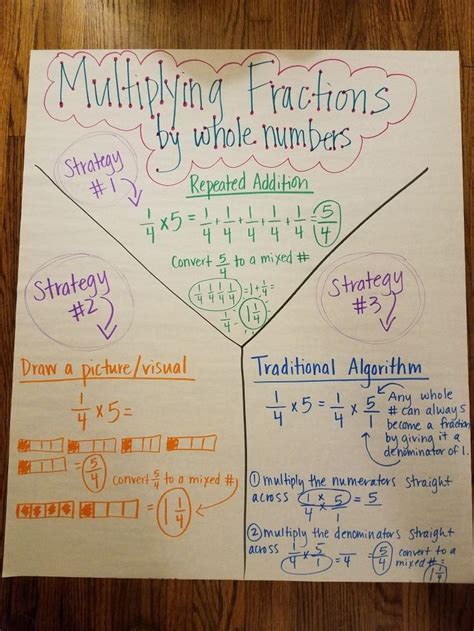 Multiplying Fractions
by whole numbers
Strategy
#1
Repeated Addition
1/4 × 5 = 1/4 + 1/4 + 1/4 + 1/4 + 1/4 = 5/4
Convert 5/4 to a mixed #
1/4 1/4 1/4 1/4 = 1 + 1/4 =
1 1/4
Strategy
#2
Draw a picture/visual
1/4 × 5 =
= 5/4 convert 5/4 to a mixed #
= 1 1/4
Strategy
#3
Traditional Algorithm
1/4 × 5 = 1/4 × 5/1
Any whole
# can always
become a fraction
by giving it a
denominator of 1.
① multiply the numerators straight
across 1/4 × 5/1 = 5
② multiply the denominators straight
across 1/4 × 5/1 = /4 5/4 convert to a
mixed # =
1 1/4